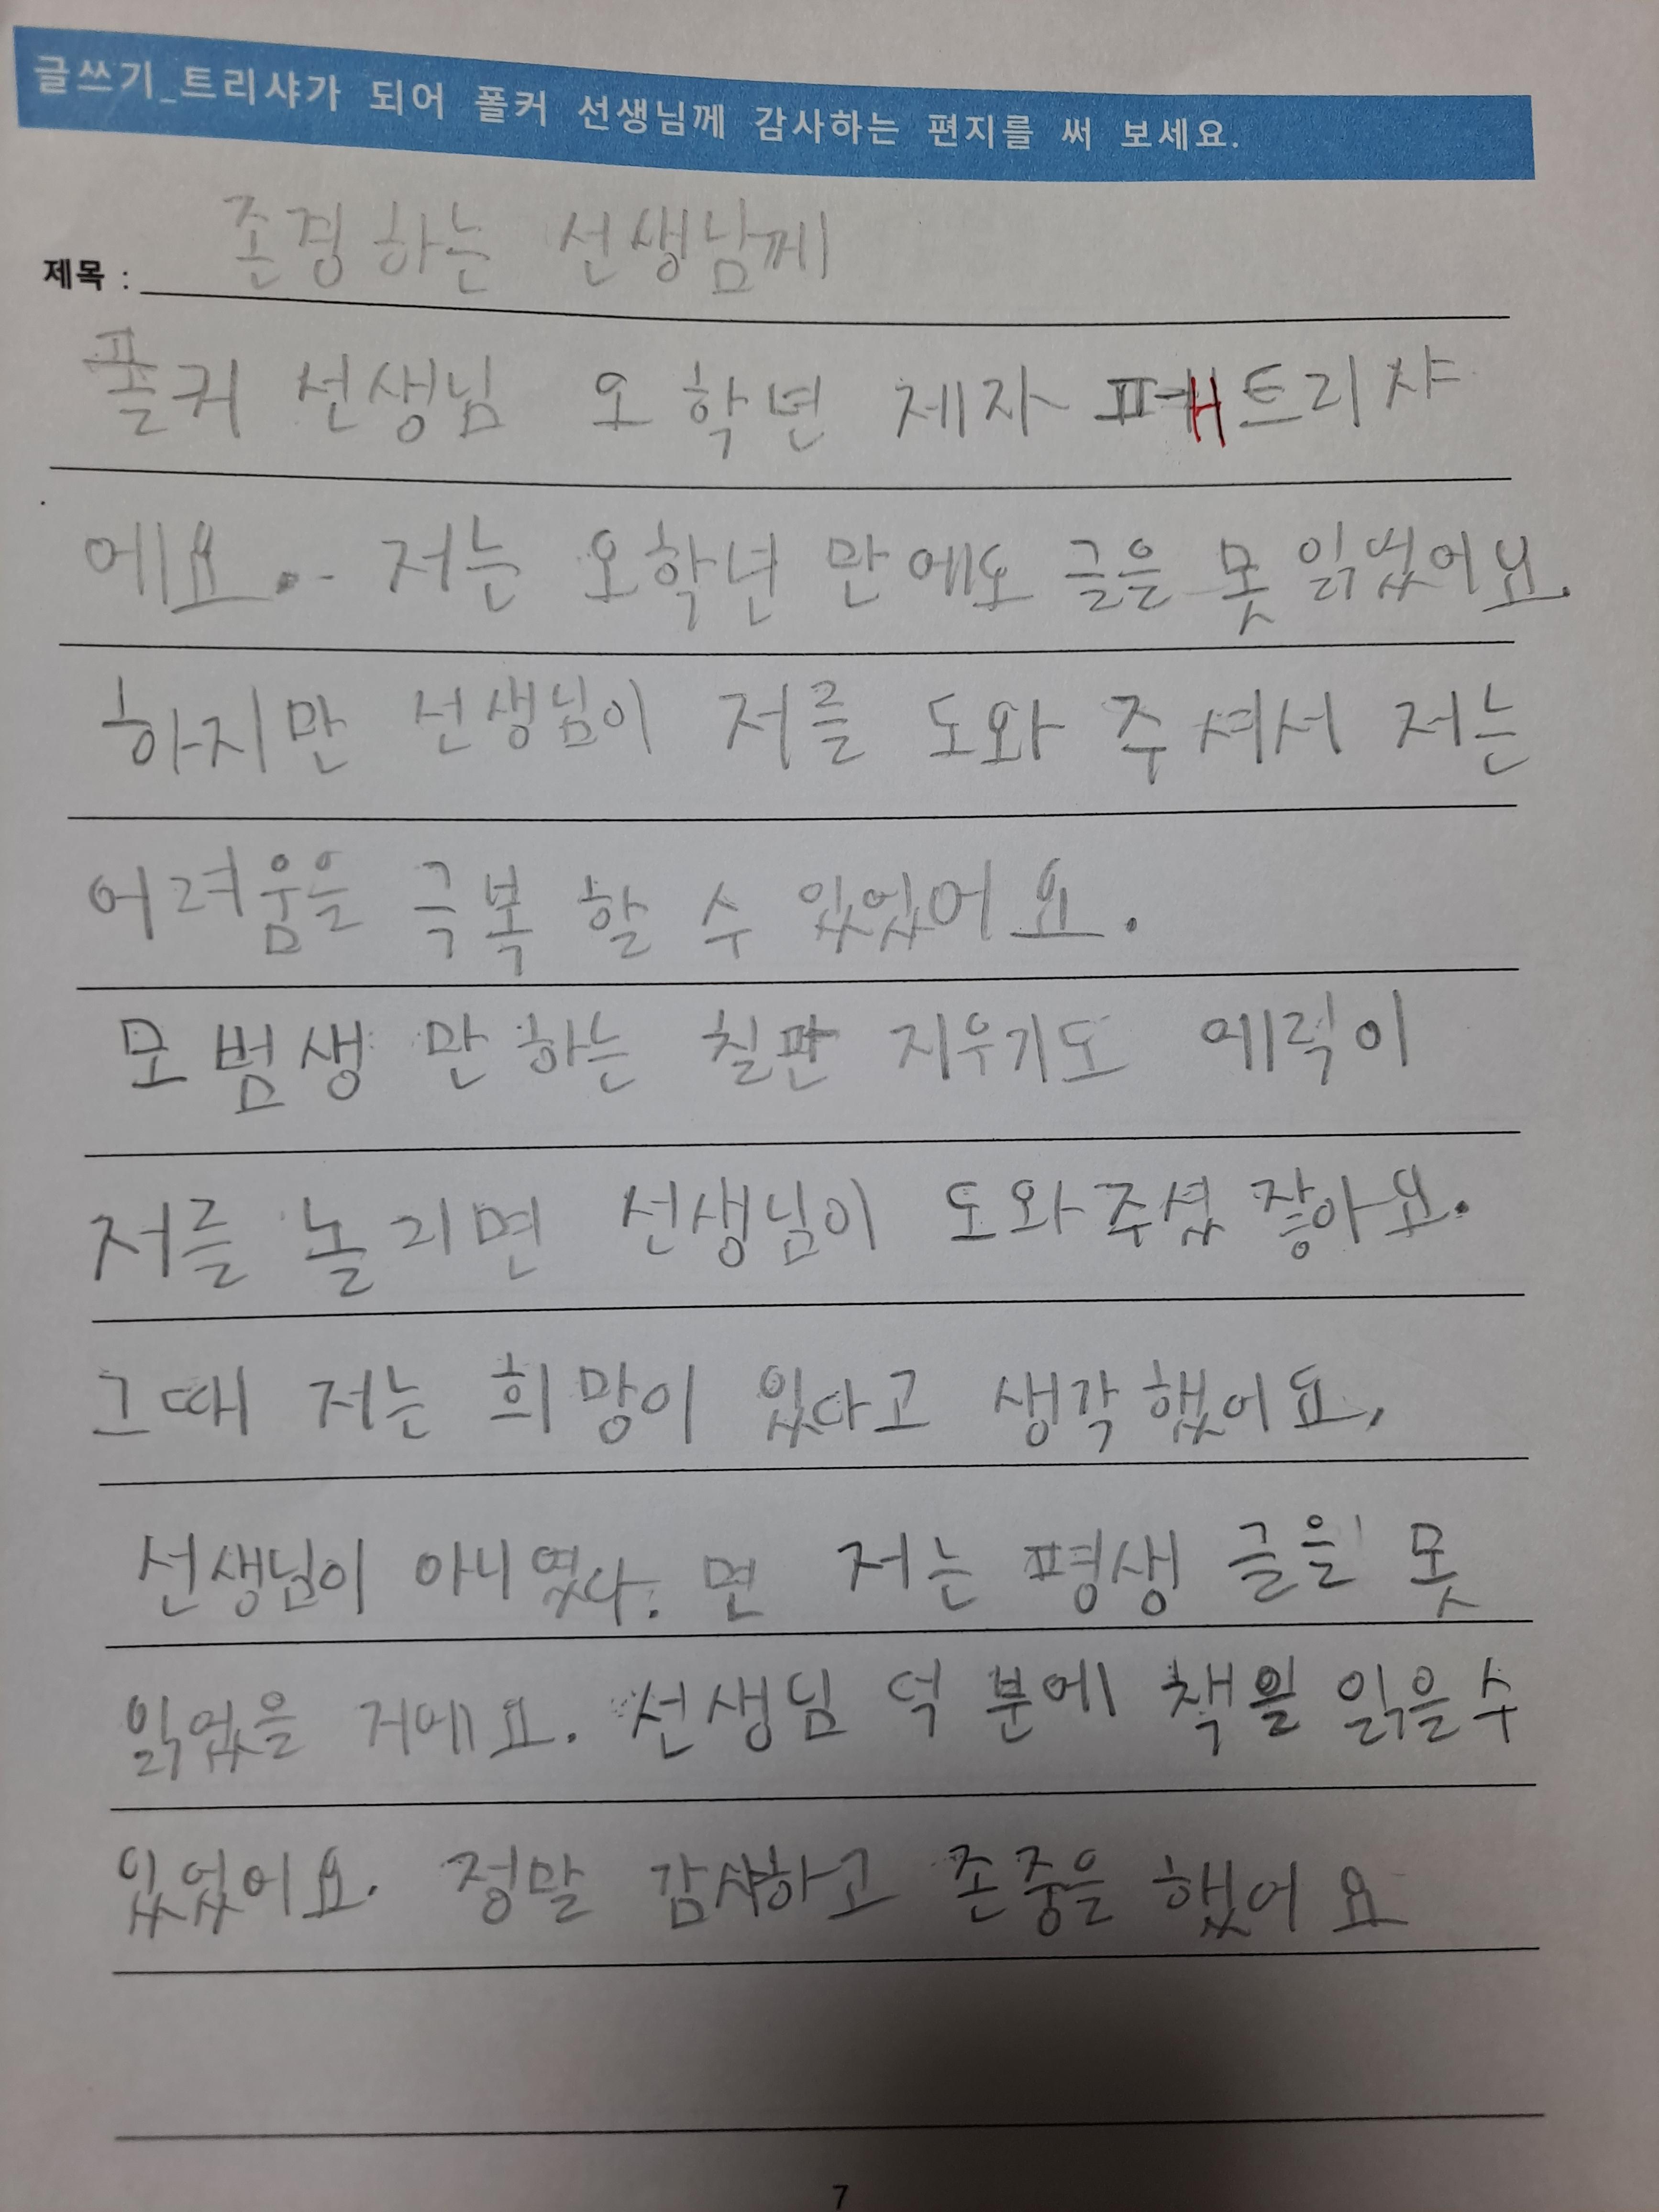 글쓰기_트리샤가 되어 폴커 선생님께 감사하는 편지를 써 보세요.
제목 : 존경하는 선생님께
폴커 선생님 오학년 제자 패트리샤
에요. 저는 오학년 만에도 글을 못 읽었어요.
하지만 선생님이 저를 도와 주셔서 저는
어려움을 극복 할 수 있었어요.
모범생 만 하는 칠판 지우기도 에릭이
저를 놀리면 선생님이 도와주셨 잖아요.
그때 저는 희망이 있다고 생각했어요,
선생님이 아니였다. 면 저는 평생 글을 못
읽었을 거에요. 선생님 덕 분에 책을 읽을 수
있었어요. 정말 감사하고 존중을 했어요
7